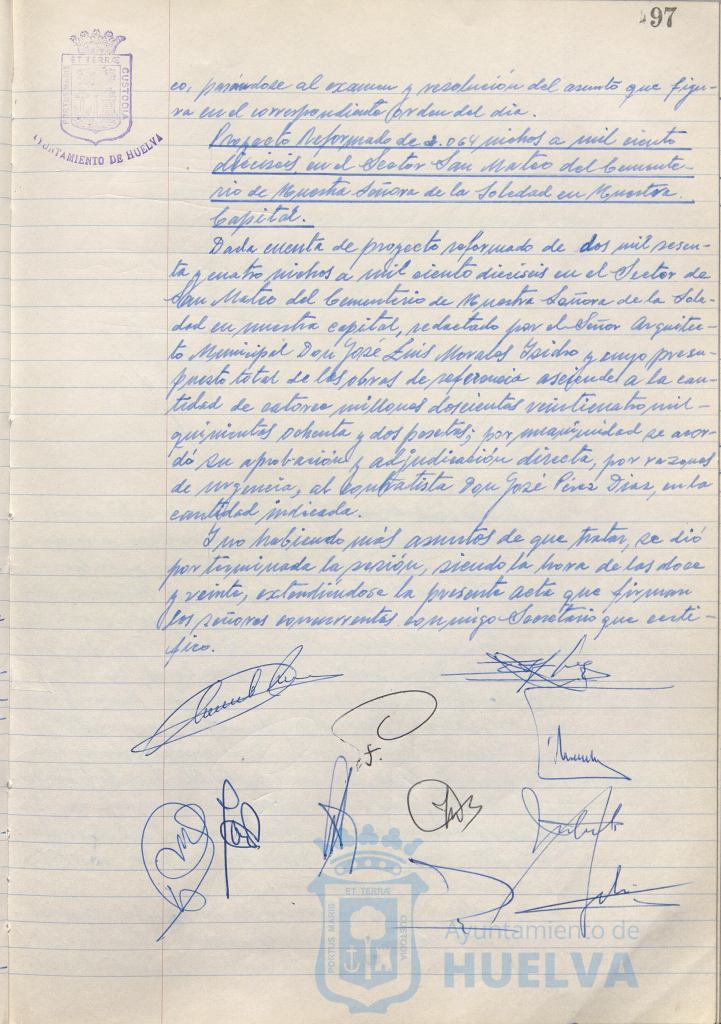 97
ET TERRÆ
PORTUS MARIS
CUSTODIA
AYUNTAMIENTO DE HUELVA
co, pasándose al examen y resolución del asunto que figu-
ra en el correspondiente orden del día.
Proyecto Reformado de 2.064 nichos a mil ciento
dieciseis, en el Sector San Mateo del Cemente-
rio de Nuestra Señora de la Soledad en Nuestra
Capital.
Dada cuenta de proyecto reformado de dos mil sesen-
ta y cuatro nichos a mil ciento dieciseis en el Sector de
San Mateo del Cementerio de Nuestra Señora de la Sole-
dad en nuestra capital, redactado por el Señor Arquitec-
to Municipal Don José Luis Morales Isidro y cuyo presu-
puesto total de las obras de referencia asciende a la can-
tidad de catorce millones doscientas veinticuatro mil
quinientas ochenta y dos pesetas; por unanimidad se acor-
dó su aprobación y adjudicación directa, por razones
de urgencia, al contratista Don José Pérez Diaz, en la
cantidad indicada.
Y no habiendo más asuntos de que tratar, se dió
por terminada la sesión, siendo la hora de las doce
y veinte, extendiéndose la presente acta que firman
los señores concurrentes conmigo Secretario que certi-
fico.
ET TERRÆ
PORTUS MARIS
CUSTODIA
Ayuntamiento de
HUELVA